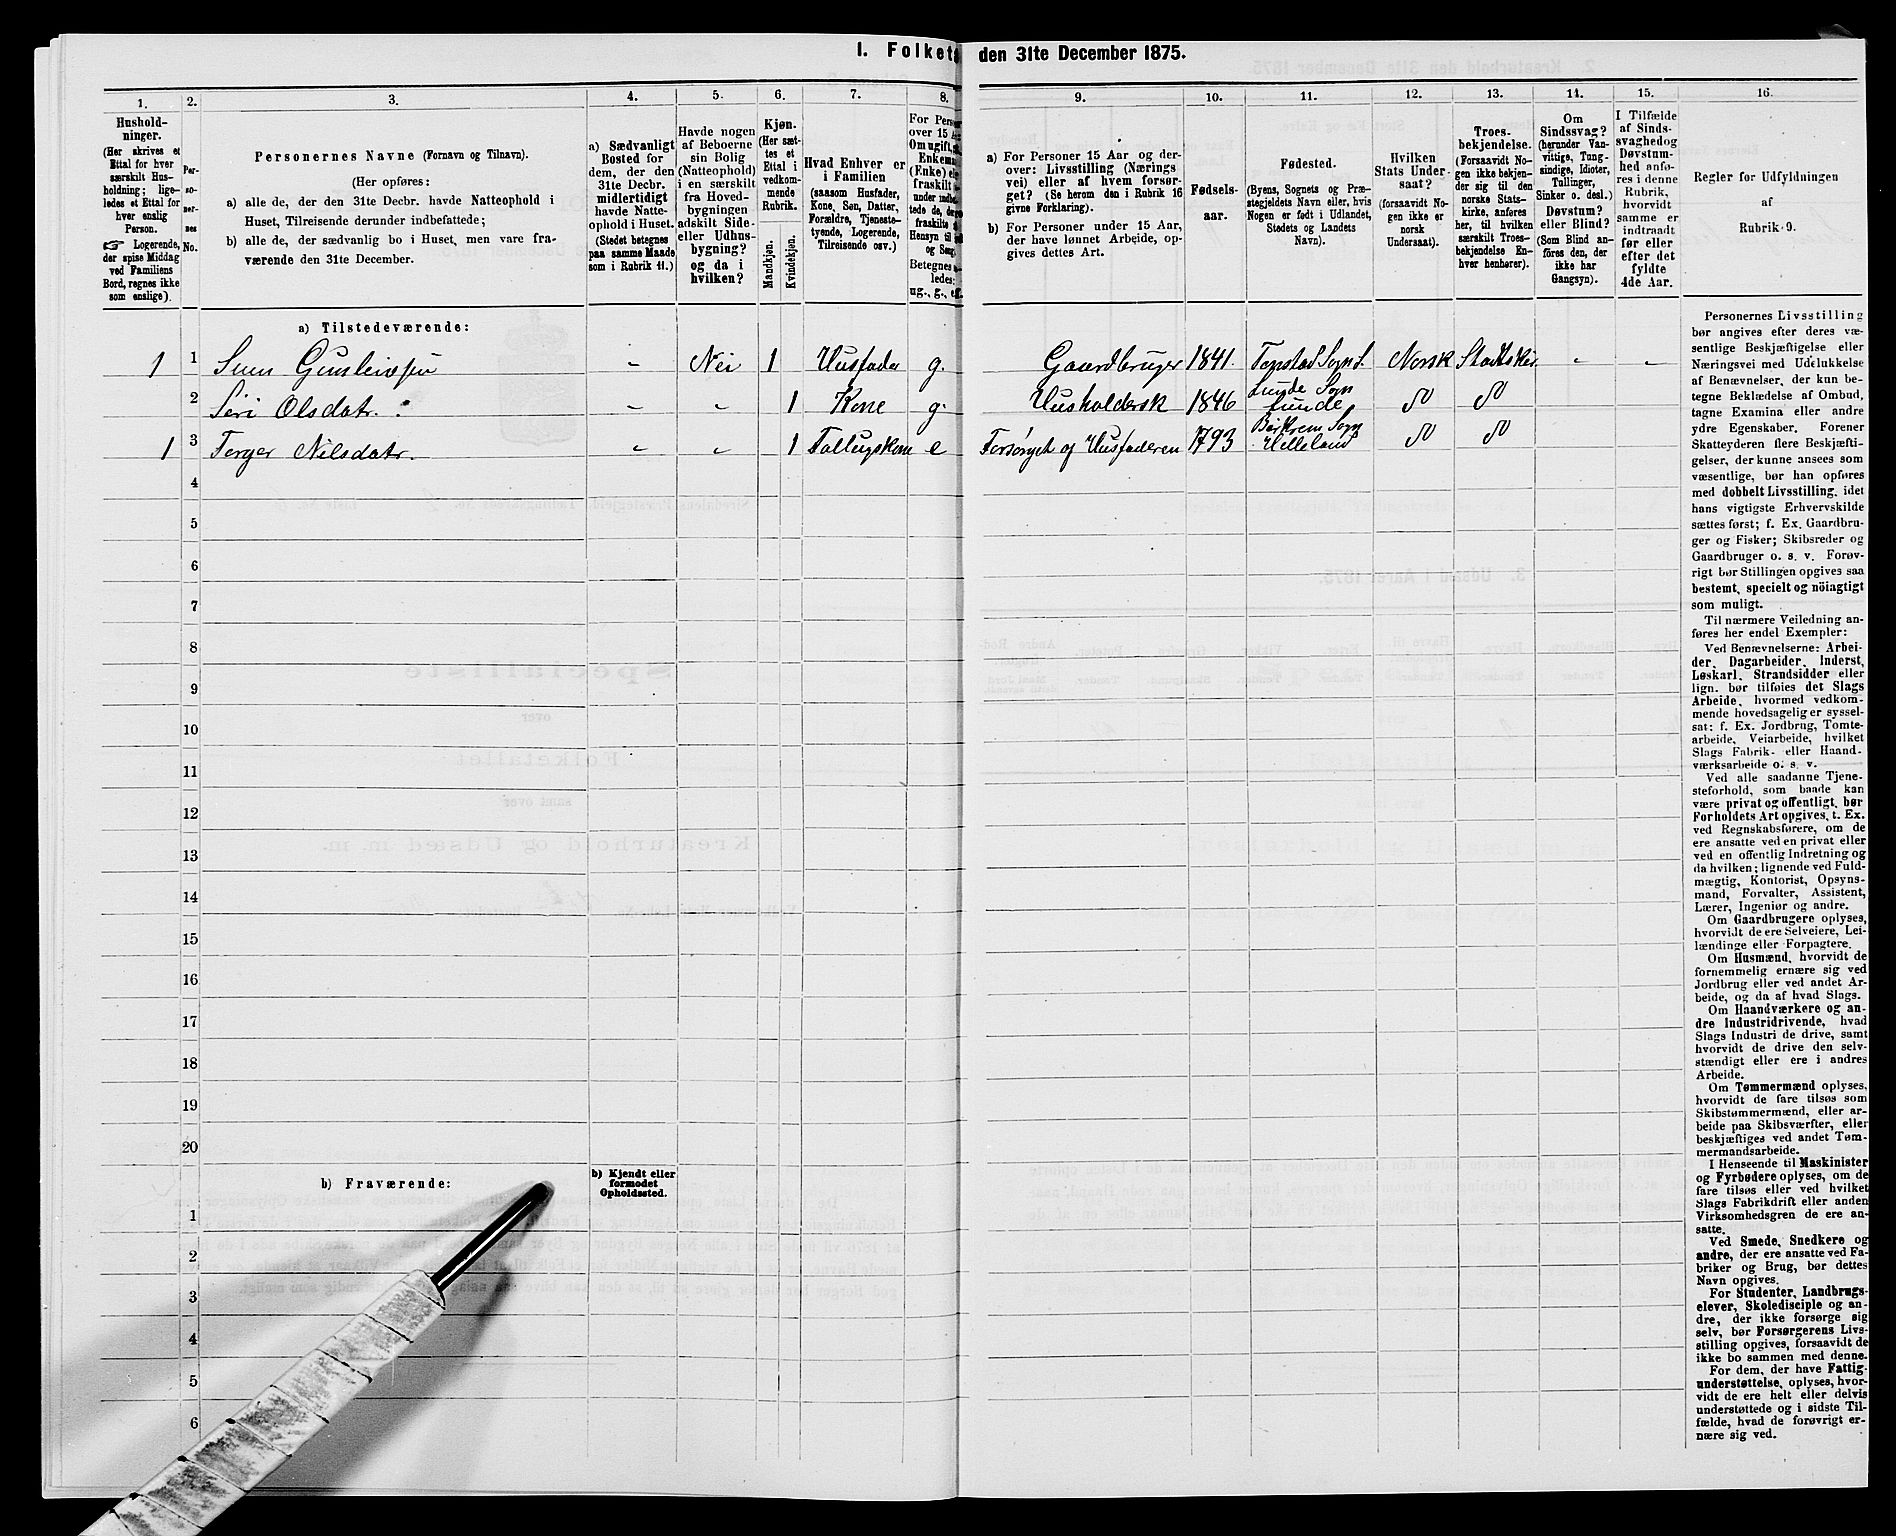 I. Folket
den 31te December 1875.
1.
2.
3.
4.
5.
6.
7.
8.
9.
10.
11.
12.
13.
14.
15.
16.
Hushold-
ninger.
(Her skrives et
Ettal for hver
særskilt Hus-
holdning; lige-
ledes et Ettal for
hver enslig
Person.
☞ Logerende,
der spise Middag
ved Familiens
Bord, regnes ikke
som enslige).
Per-
so-
ner-
nes
No.
Personernes Navne (Fornavn og Tilnavn).
(Her opføres:
a) alle de, der den 31te Decbr. havde Natteophold i
Huset, Tilreisende derunder indbefattede;
b) alle de, der sædvanlig bo i Huset, men vare fra-
værende den 31te December.
a) Sædvanligt
Bosted for
dem, der den
31te Decbr.
midlertidigt
havde Natte-
ophold i Huset.
(Stedet betegnes
paa samme Maade
som i Rubrik 11.)
Havde nogen
af Beboerne
sin Bolig
(Natteophold)
i en særskilt
fra Hoved-
bygningen
adskilt Side-
eller Udhus-
bygning?
og da i
hvilken?
Kjøn.
(Her sæt-
tes et
Ettal i
vedkom-
mende
Rubrik.
Mandkjøn.
Kvindekjøn.
Hvad Enhver er
i Familien
(saasom Husfader,
Kone, Søn, Datter,
Forældre, Tjeneste-
tyende, Logerende,
Tilreisende osv.)
For Per
over 15
Om ugift,
Enkem
(Enke) el
fraskilt
under indbe
tede de, der
fraskilte
Hensyn til
og Seng
Betegnes
ledes:
ug., g., e
a) For Personer 15 Aar og der-
over: Livsstilling (Nærings-
vei) eller af hvem forsør-
get? (Se herom den i Rubrik 16
givne Forklaring).
b) For Personer under 15 Aar,
der have lønnet Arbeide, op-
gives dettes Art.
Fødsels-
aar.
Fødested.
(Byens, Sognets og Præ-
stegjeldets Navn eller, hvis
Nogen er født i Udlandet,
Stedets og Landets
Navn).
Hvilken
Stats Under-
saat?
(forsaavidt No-
gen ikke er
norsk
Undersaat).
Troes-
bekjendelse.
(Forsaavidt No-
gen ikke bekjen-
der sig til den
norske Stats-
kirke, anføres
her, til hvilken
særskilt Troes-
bekjendelse En-
hver henhører).
Om
Sindssvag?
(herunder Van-
vittige, Tung-
sindige, Idioter,
Tullinger,
Sinker o. desl.)
Døvstum?
eller Blind?
(Som Blind an-
føres den, der
ikke har
Gangsyn).
I Tilfælde
af Sinds-
svaghed og
Døvstum-
hed anfø-
res i denne
Rubrik,
hvorvidt
samme er
indtraadt
før eller
efter det
fyldte
4de Aar.
Regler for Udfyldningen
af
Rubrik 9.
a) Tilstedeværende:
1 1 Gunleivsen - Nei 1 Husfader g. Gaardbruger 1841. Tonstad Sogn S. Norsk Statskir - -
2 Siri Olsdatr. - " 1 Kone g. Husholdersk 1846 Lunde Sogn Lunde do do
1 3 Nilsdatr. " " 1 e Forsørget af Husfaderen 1793 Sogn Helleland do do
4
5
6
7
8
9
10
11
12
13
14
15
16
17
18
19
20
b) Fraværende:
b) Kjendt eller
formodet
Opholdssted.
1
2
3
4
5
6
Personernes Livsstilling
bør angives efter deres væ-
sentlige Beskjæftigelse eller
Næringsvei med Udelukkelse
af Benævnelser, der kun be-
tegne Beklædelse af Ombud,
tagne Examina eller andre
ydre Egenskaber. Forener
Skatteyderen flere Beskjæfti-
gelser, der kunne ansees som
væsentlige, bør han opføres
med dobbelt Livsstilling, idet
hans vigtigste Erhvervskilde
sættes først; f. Ex. Gaardbru-
ger og Fisker; Skibsreder og
Gaardbruger o. s. v. Forøv-
rigt bør Stillingen opgives saa
bestemt, specielt og nöiagtigt
som muligt.
Til nærmere Veiledning an-
føres her endel Exempler:
Ved Benævnelserne: Arbei-
der, Dagarbeider, Inderst,
Løskarl, Strandsidder eller
lign. bør tilføies det Slags
Arbeide, hvormed vedkom-
mende hovedsagelig er syssel-
sat; f. Ex. Jordbrug, Tomte-
arbeide, Veiarbeide, hvilket
Slags Fabrik- eller Haand-
værksarbeide o. s. v.
Ved alle saadanne Tjene-
steforhold, som baade kan
være privat og offentligt, bør
Forholdets Art opgives, t. Ex.
ved Regnskabsførere, om de
ere ansatte ved en privat eller
ved en offentlig Indretning og
da hvilken; lignende ved Fuld-
mægtig, Kontorist, Opsyns-
mand, Forvalter, Assistent,
Lærer, Ingeniør og andre.
Om Gaardbrugere oplyses,
hvorvidt de ere Selveiere, Lei-
lændinge eller Forpagtere.
Om Husmænd, hvorvidt de
fornemmelig ernære sig ved
Jordbrug eller ved andet Ar-
beide, og da af hvad Slags.
Om Haandværkere og an-
dre Industridrivende, hvad
Slags Industri de drive, samt
hvorvidt de drive den selv-
stændigt eller ere i andres
Arbeide.
Om Tømmermænd oplyses,
hvorvidt de fare tilsøs som
Skibstømmermænd, eller ar-
beide paa Skibsværfter, eller
beskjæftiges ved andet Tøm-
mermandsarbeide.
I Henseende til Maskinister
og Fyrbødere oplyses, om de
fare tilsøs eller ved hvilket
Slags Fabrikdrift eller anden
Virksomhedsgren de ere an-
satte.
Ved Smede, Snedkere og
andre, der ere ansatte ved Fa-
briker og Brug, bør dettes
Navn opgives.
For Studenter, Landbrugs-
elever, Skoledisciple og an-
dre, der ikke forsørge sig
selv, bør Forsørgerens Livs-
stilling opgives, forsaavidt de
ikke bo sammen med denne.
For dem, der have Fattig-
understøttelse, oplyses, hvor-
vidt de ere helt eller delvis
understøttede og i sidste Til-
fælde, hvad de forøvrigt er-
nære sig ved.